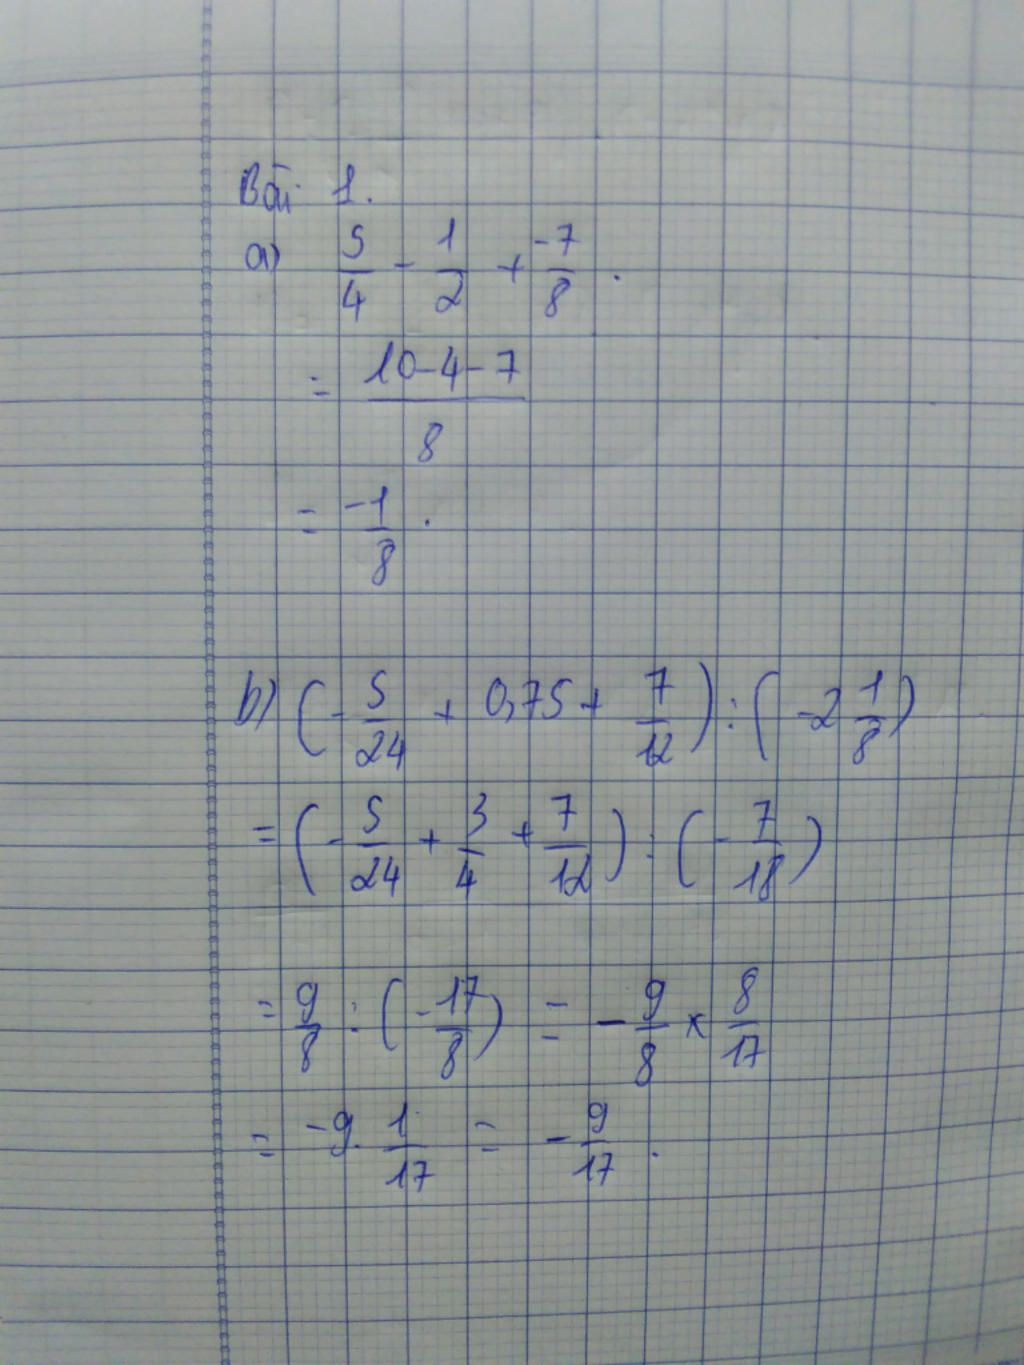 Bài 1.
a) 5/4 - 1/2 + -7/8 .
= (10-4-7)/8
= -1/8 .
b) (-5/24 + 0,75 + 7/12) : (-2 1/8)
= (-5/24 + 3/4 + 7/12) : (-7/18)
= 9/8 : (-17/8) = -9/8 × 8/17
= -9. 1/17 = -9/17 .